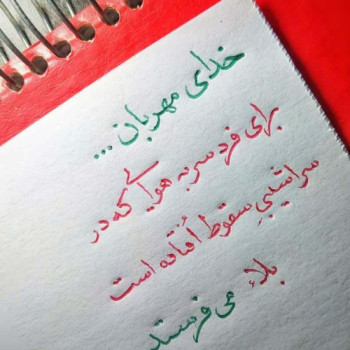 خدای مهربان ...
برای فرد سر به هوایی که در
سراشیبیِ سقوط اُفتاده است
بلاء می‌فرستد